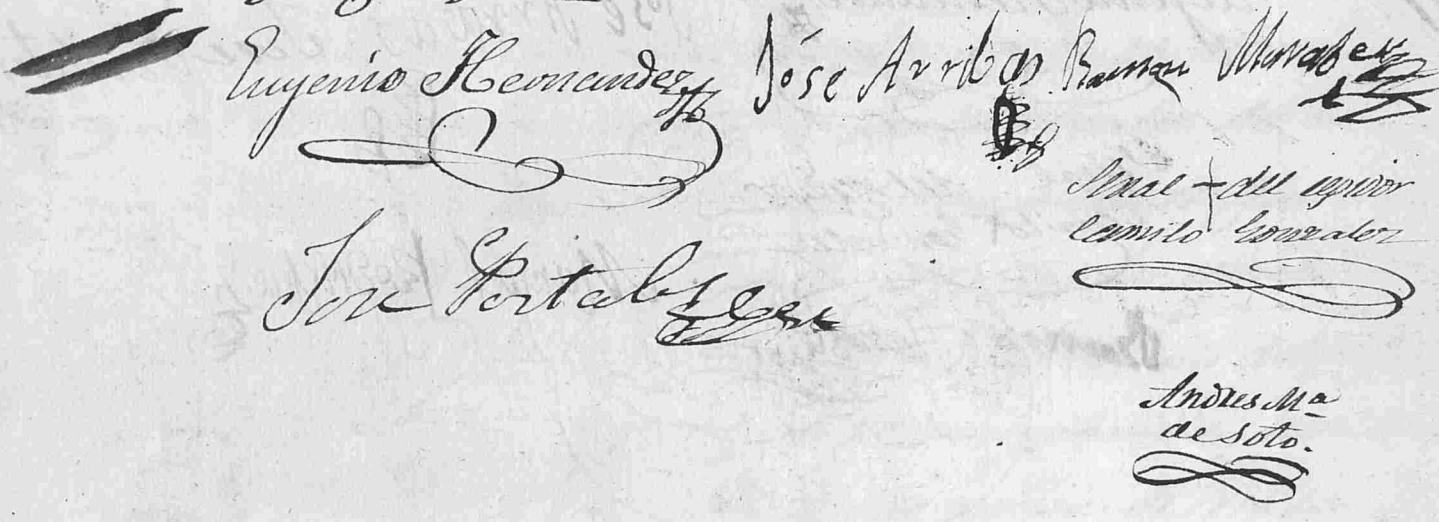 Eugenio Hernandez José Arribas Ramon
Señal + del regidor
Camilo Gonzalez
José Portales
Andres Mª
de Soto.